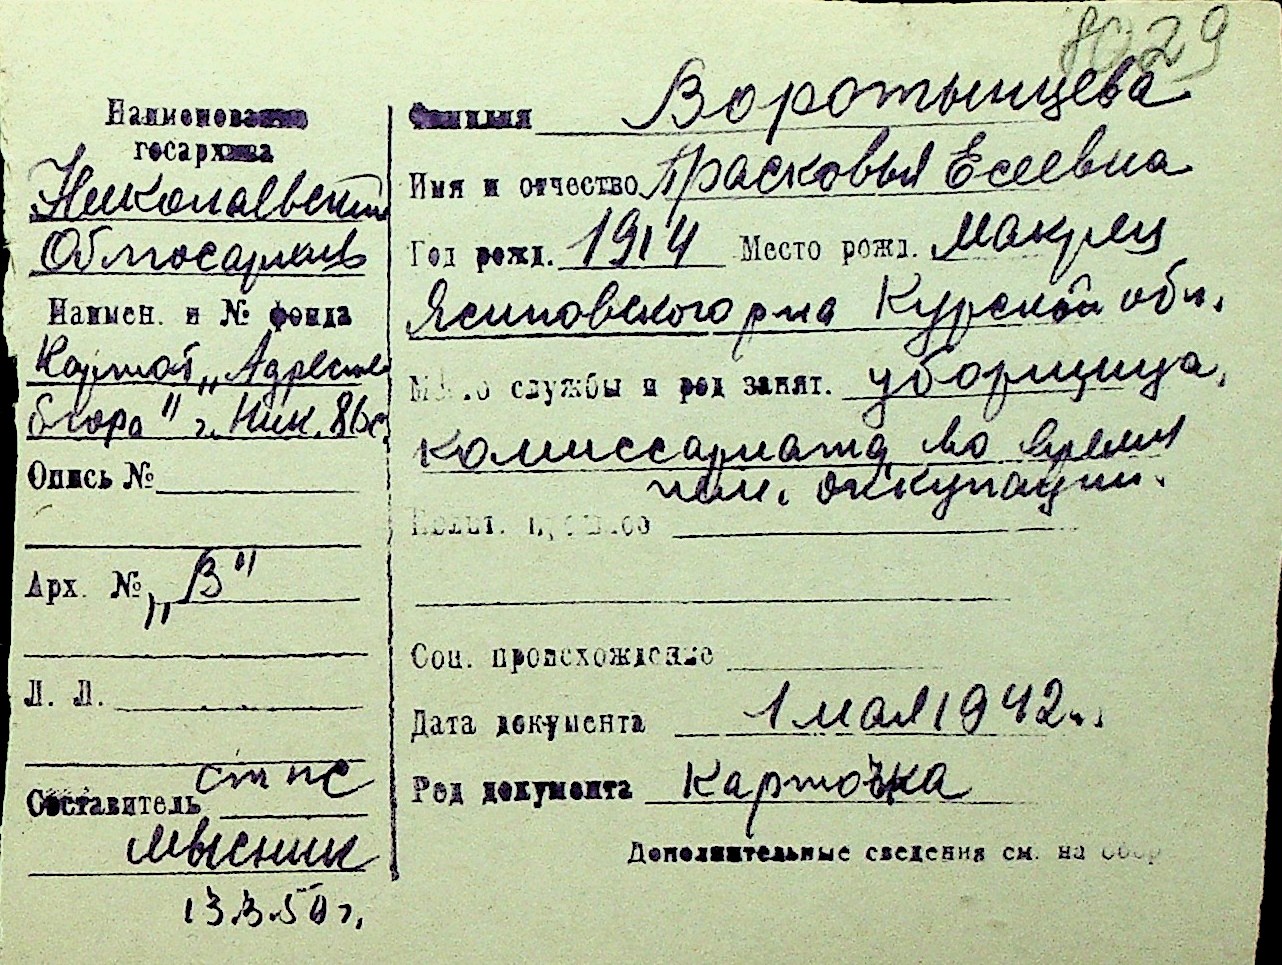 8029
Наименование
госархива
Николаевский
Облгосархив
Наимен. и № фонда
Картот. „Адресно
бюро" г. Ник.
Опись №
Арх. № „В"
Л. Л.
ст нс
Составитель
Мысник
13.3.50 г.
Фамилия Воротынцева
Имя и отчество Прасковья Есеевна
Год рожд. 1914 Место рожд. Макрец
Ясиновского р-на Курской обл.
Место службы и род занят. уборщица,
комиссариата во время
нем. оккупации.
Полит. прошлое
Соц. происхождение
Дата документа 1 мая 1942 г.
Род документа Карточка
Дополнительные сведения см. на обор